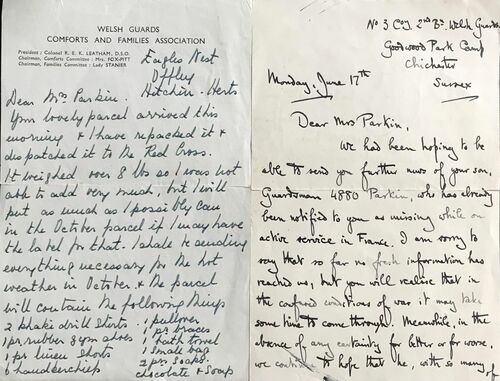 WELSH GUARDS
COMFORTS AND FAMILIES ASSOCIATION
President : Colonel R. E. K. LEATHAM, D.S.O.
Chairman, Comforts Committee : Mrs. FOX-PITT
Chairman, Families Committee : Lady STANIER
Eagles Nest
Offley
Hitchin - Herts
Dear Mrs Parkin.
Your lovely parcel arrived this
morning & I have repacked it &
dispatched it to the Red Cross.
It weighed over 8 lbs so I was not
able to add very much, but I will
put as much as I possibly can
in the October parcel if I may have
the label for that. I shall be sending
everything necessary for the hot
weather in October & the parcel
will contain the following things
2 khaki drill shirts. 1 pullover
1 pr. rubber gym shoes 1 pr braces
1 pr linen shorts 1 bath towel
1 small bag
6 handkerchiefs 2 prs socks.
chocolate & soap
No 3 Coy 2nd Bn. Welsh Guards
Goodwood Park Camp
Chichester
Sussex
Monday, June 17th
Dear Mrs Parkin,
We had been hoping to be
able to send you further news of your son,
Guardsman 4880 Parkin, who has already
been notified to you as missing while on
active service in France. I am sorry to
say that so far no fresh information has
reached us, but you will realise that in
the confused conditions of war it may take
some time to come through. Meanwhile, in the
absence of any certainty for better or for worse,
we continue to hope that he, with so many